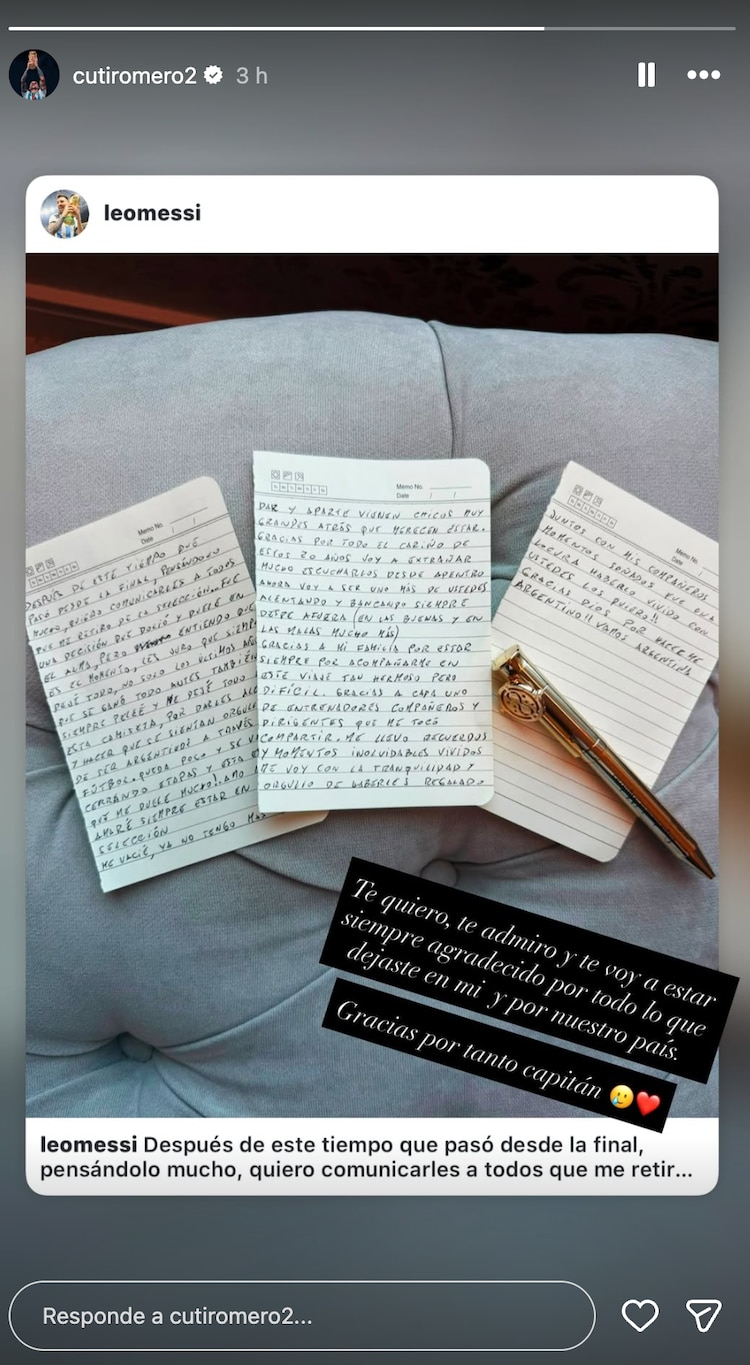 cutiromero2 3 h
leomessi
Memo No.
Date / /
DESPUES DE ESTE TIEMPO QUE
PASÓ DESDE LA FINAL, PENSÁNDOLO
MUCHO, QUIERO COMUNICARLES A TODOS
QUE ME RETIRO DE LA SELECCIÓN. FUE
UNA DECISIÓN QUE DOLIÓ Y DUELE EN
EL ALMA, PERO ENTIENDO QUE
ES EL MOMENTO. LES JURO QUE SIEMPRE
DEJÉ TODO, NO SOLO LOS ULTIMOS AÑOS
QUE SE GANÓ TODO ANTES TAMBIÉN
SIEMPRE PELEÉ Y ME DEJÉ TODO
ESTA CAMISETA, POR DARLES ALE
Y HACER QUE SE SIENTAN ORGULL
DE SER ARGENTINOS A TRAVÉS
FÚTBOL. QUEDA POCO Y SE V
CERRANDO ETAPAS Y ESTA E
QUE ME DUELE MUCHO. AMO
AMARÉ SIEMPRE ESTAR EN
SELECCIÓN
ME VACIÉ, YA NO TENGO MAS
Memo No.
Date / /
DAR Y APARTE VIENEN CHICOS MUY
GRANDES ATRÁS QUE MERECEN ESTAR.
GRACIAS POR TODO EL CARIÑO DE
ESTOS 20 AÑOS VOY A EXTRAÑAR
MUCHO ESCUCHARLOS DESDE ADENTRO
AHORA VOY A SER UNO MÁS DE USTEDES
ALENTANDO Y BANCANDO SIEMPRE
DESDE AFUERA (EN LAS BUENAS Y EN
LAS MALAS MUCHO MÁS)
GRACIAS A MI FAMILIA POR ESTAR
SIEMPRE POR ACOMPAÑARME EN
ESTE VIAJE TAN HERMOSO PERO
DIFÍCIL. GRACIAS A CADA UNO
DE ENTRENADORES COMPAÑEROS Y
DIRIGENTES QUE ME TOCÓ
COMPARTIR. ME LLEVO RECUERDOS
Y MOMENTOS INOLVIDABLES VIVIDOS
ME VOY CON LA TRANQUILIDAD Y
ORGULLO DE HABERLES REGALADO
Memo No.
Date
JUNTOS CON MIS COMPAÑEROS
MOMENTOS SOÑADOS FUE UNA
LOCURA HABERLO VIVIDO CON
USTEDES LOS QUIERO!!
GRACIAS DIOS POR HACERME
ARGENTINO!! VAMOS ARGENTINA
Te quiero, te admiro y te voy a estar
siempre agradecido por todo lo que
dejaste en mi y por nuestro país.
Gracias por tanto capitán 🥲❤️
leomessi Después de este tiempo que pasó desde la final,
pensándolo mucho, quiero comunicarles a todos que me retir...
Responde a cutiromero2...